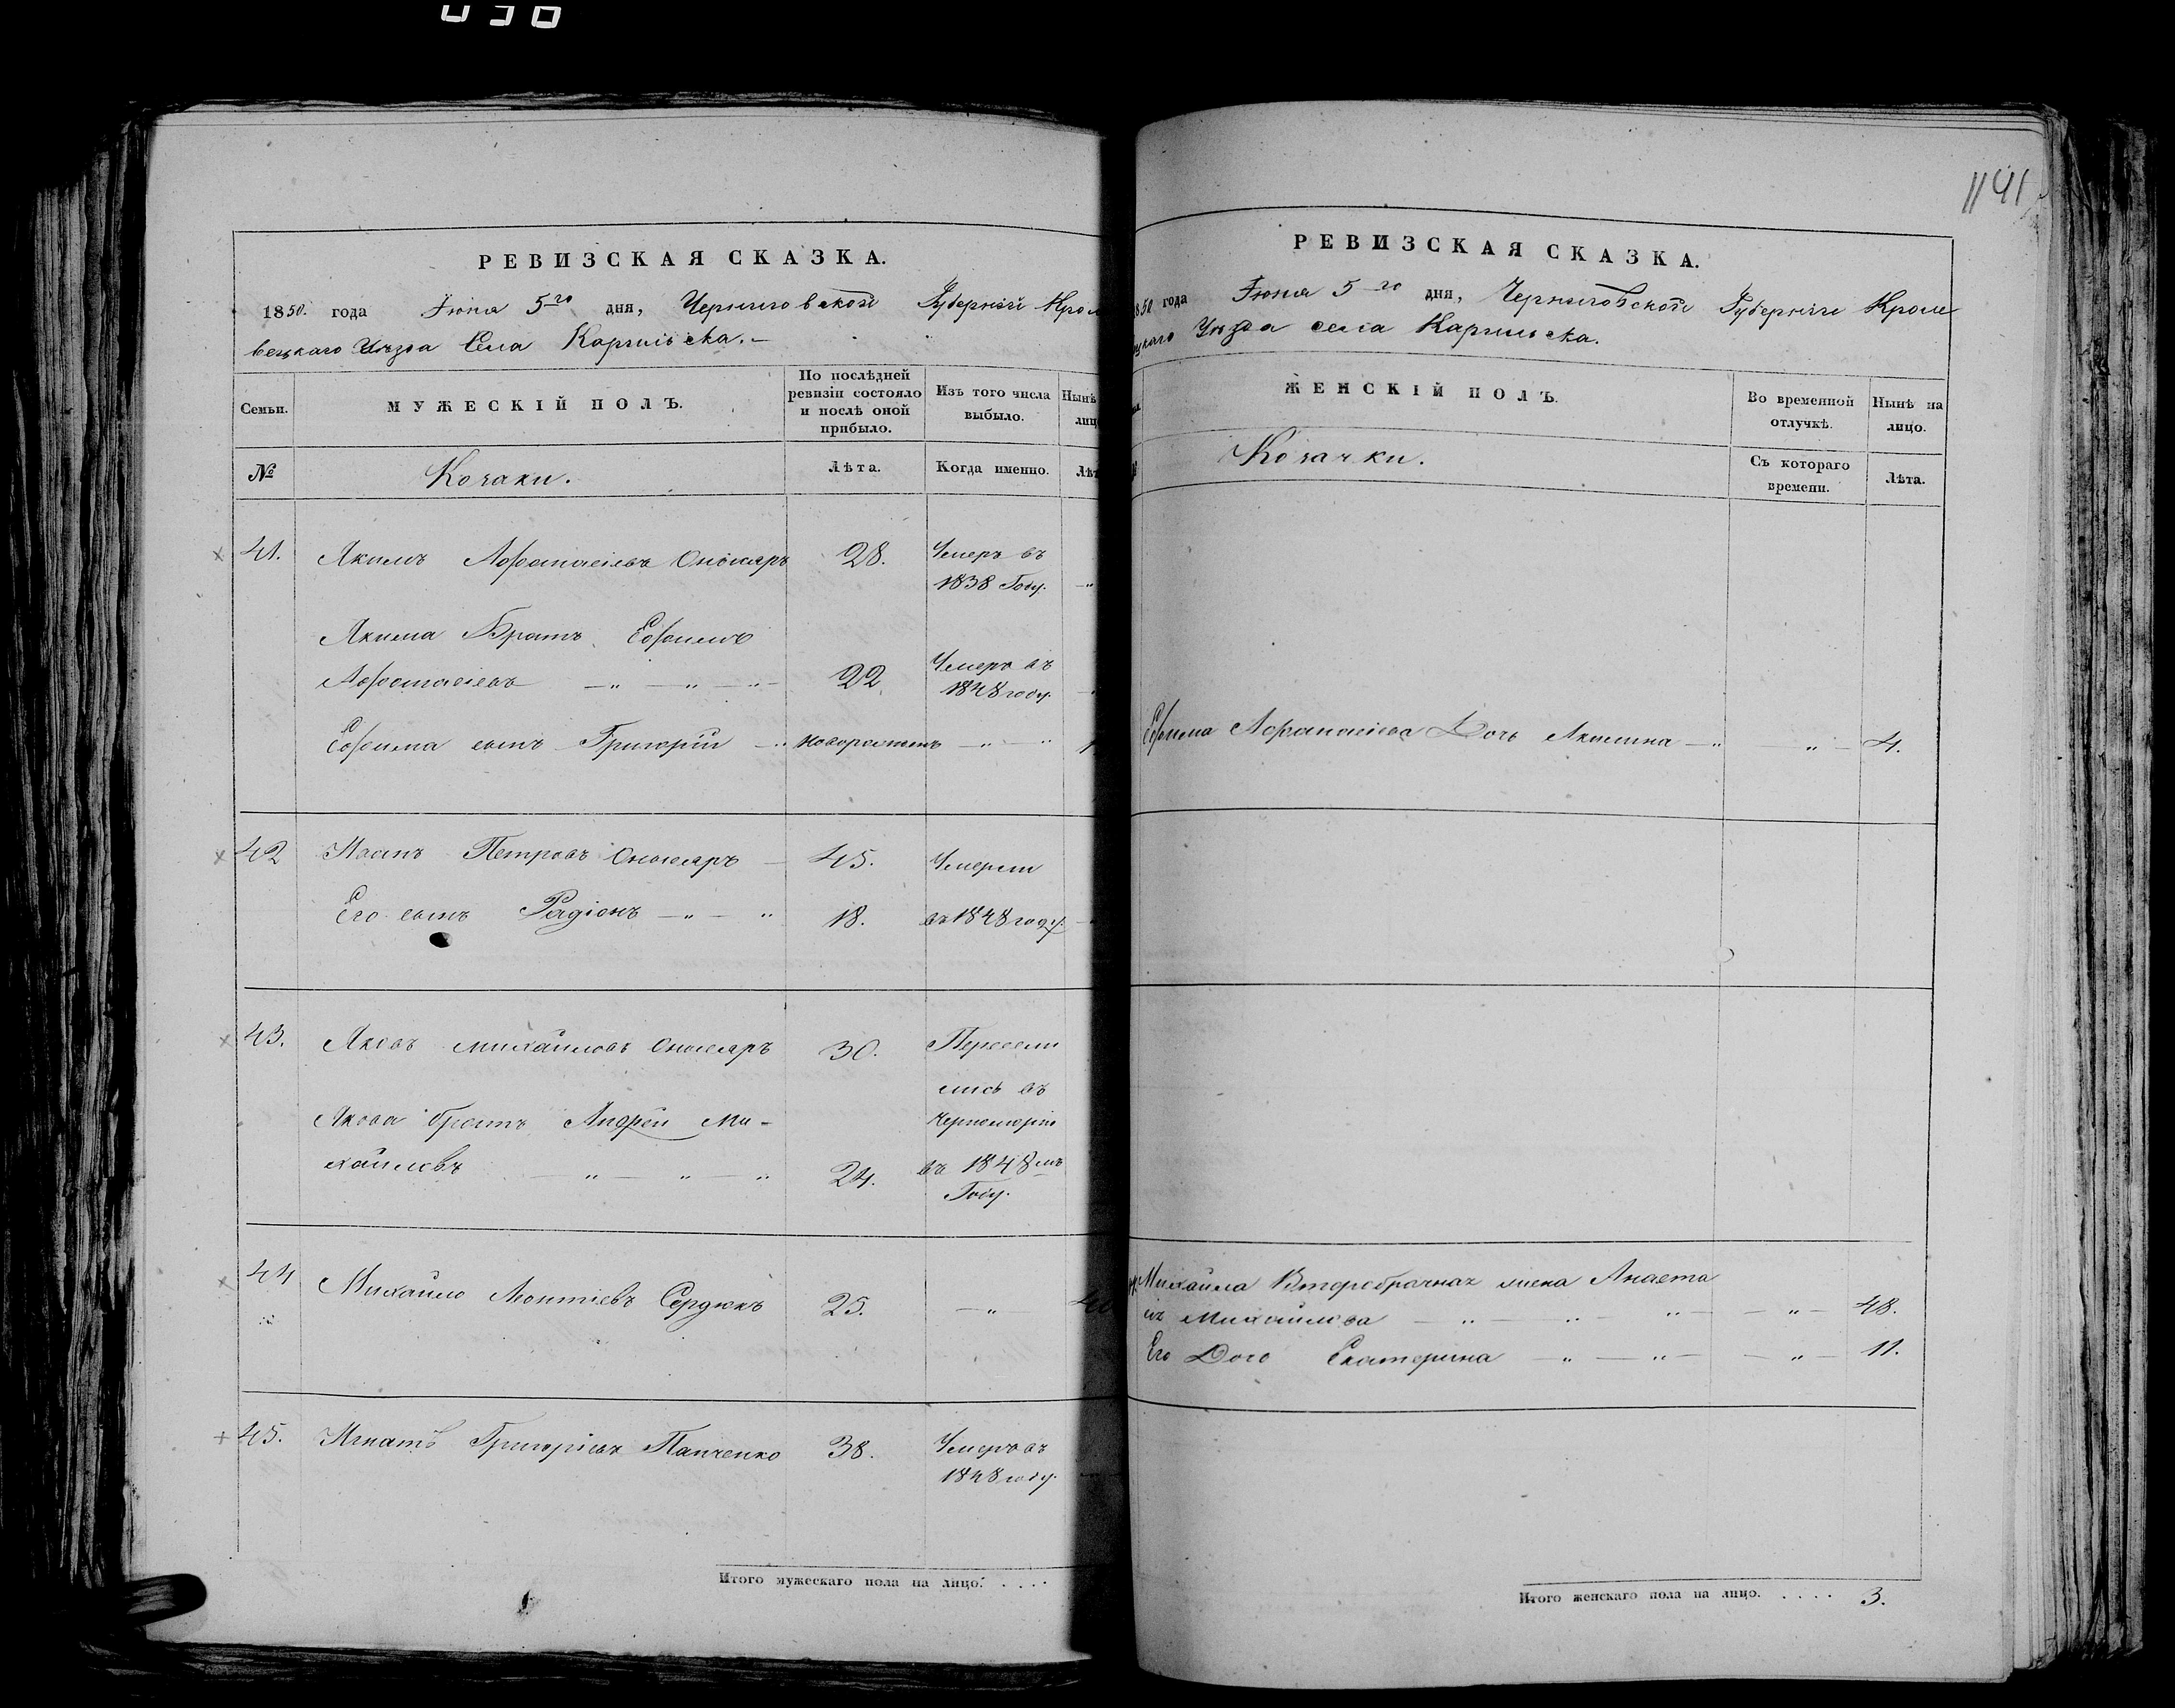 1141
РЕВИЗСКАЯ СКАЗКА.
1850. года Іюня 5го дня, Черниговской Губерніи Кроле
вецкаго Уѣзда Села Карыльска.
Семьи.
МУЖЕСКІЙ ПОЛЪ.
По послѣдней
ревизіи состояло
и послѣ оной
прибыло.
Изъ того числа
выбыло.
Нынѣ
лиц
№
Козаки.
Лѣта.
Когда именно.
Лѣт
41. Якимъ Афонасіевъ Слюсаръ 28. Умеръ въ
1838 Году.
Якима Братъ Ефимъ
Афонасіевъ 22 Умеръ въ
1848 году.
Ефима сынъ Григорій новорожденъ
42 Иванъ Петровъ Слюсаръ 45. Умерли
Его сынъ Радіонъ 18. въ 1848 году.
43. Яковъ Михайловъ Слюсаръ 30. Пересели
лись въ
Черноморію
Якова братъ Андрей Ми-
хайловъ 24. въ 1848мъ
Году.
44 Михайло Леонтіевъ Сердюкъ 25.
45. Игнатъ Григоріевъ Панченко 38. Умеръ въ
1848 году.
Итого мужескаго пола на лицо. . . . .
РЕВИЗСКАЯ СКАЗКА.
850 года Іюня 5го дня, Черниговской Губерніи Кроле
цкаго Уѣзда села Карыльска.
ЖЕНСКІЙ ПОЛЪ.
Во временной
отлучкѣ.
Нынѣ на
лицо.
Козачки.
Съ котораго
времени.
Лѣта.
Ефима Афанасіева Дочь Акилина 4.
Михайла Второбрачная жена Анаста
сія Михайлова 48.
Его Дочь Екатерина 11.
Итого женскаго пола на лицо. . . . . 3.